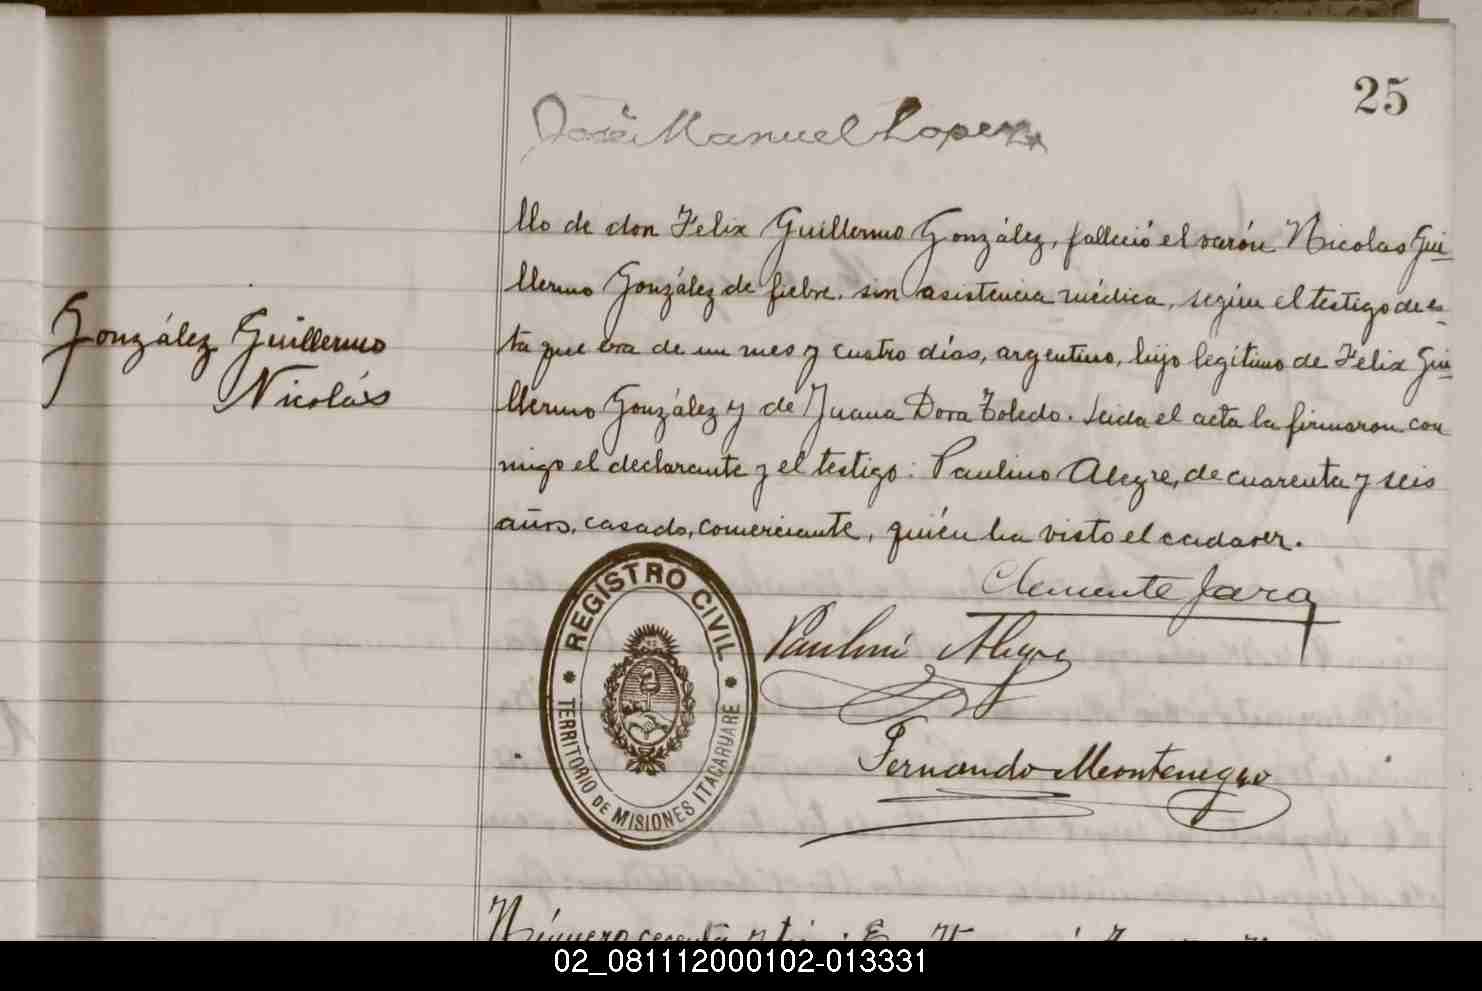 25
José Manuel Lopez
llo de don Felix Guillermo González, falleció el varón Nicolas Gui
llermo González de fiebre, sin asistencia médica, según el testigo de es-
González Guillermo
ta que era de un mes y cuatro días, argentino, hijo legítimo de Felix Gui
Nicolás
llermo González y de Juana Dora Toledo. Leida el acta la firmaron con
migo el declarante y el testigo: Paulino Alegre, de cuarenta y seis
años, casado, comerciante, quién ha visto el cadaver.
Clemente Jara
Paulino Alegre
Fernando Montenegro
REGISTRO CIVIL
TERRITORIO DE MISIONES ITACARUARE
Número
02_081112000102-013331